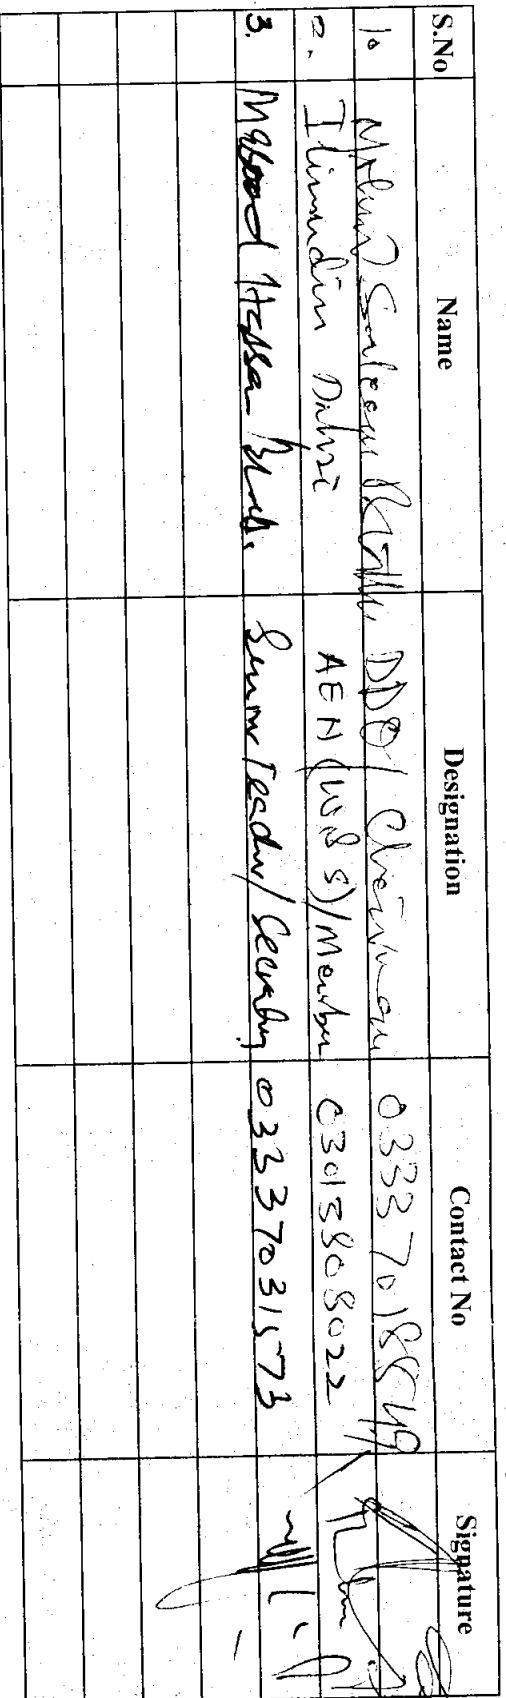 S.No Name Designation Contact No Signature
1. Mohmd Saleem DDO/ Chairman 0333 7018549
2. Ilimudin Dahri AEN (W&S)/Member 03013808022
3. Maqbood Hassan Senior Teacher/Secretary 03337031573